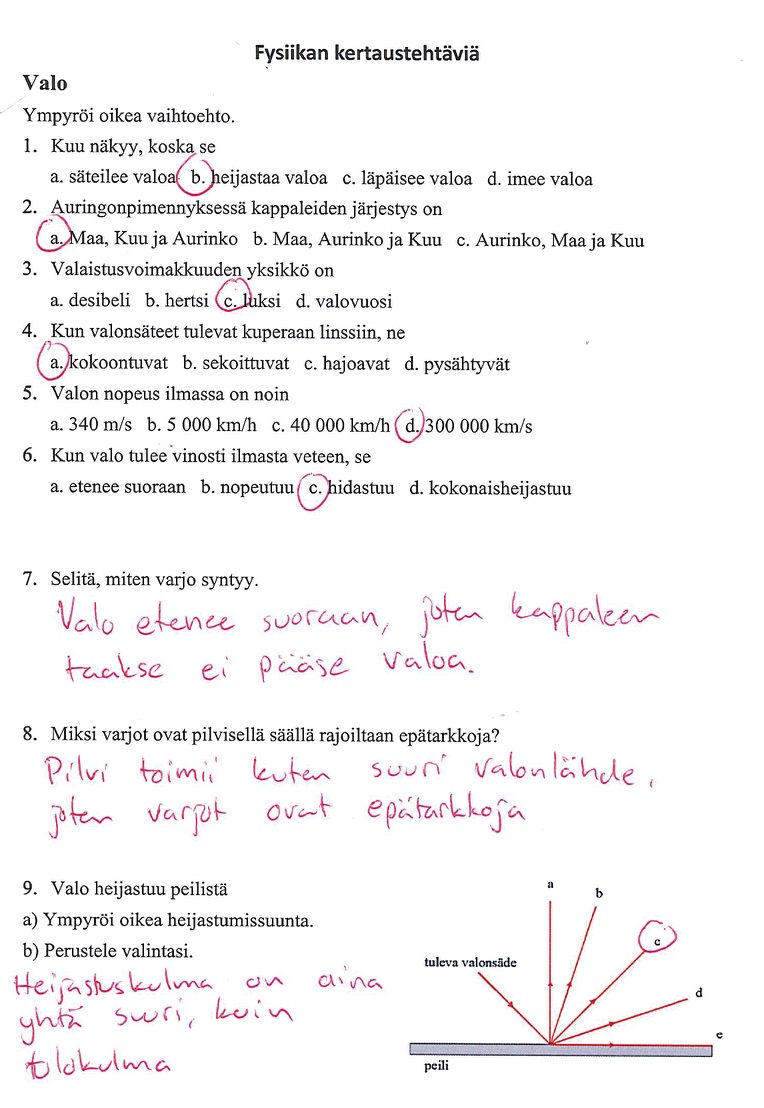 Fysiikan kertaustehtäviä
Valo
Ympyröi oikea vaihtoehto.
1. Kuu näkyy, koska se
a. säteilee valoa b. heijastaa valoa c. läpäisee valoa d. imee valoa
2. Auringonpimennyksessä kappaleiden järjestys on
a. Maa, Kuu ja Aurinko b. Maa, Aurinko ja Kuu c. Aurinko, Maa ja Kuu
3. Valaistusvoimakkuuden yksikkö on
a. desibeli b. hertsi c. luksi d. valovuosi
4. Kun valonsäteet tulevat kuperaan linssiin, ne
a. kokoontuvat b. sekoittuvat c. hajoavat d. pysähtyvät
5. Valon nopeus ilmassa on noin
a. 340 m/s b. 5 000 km/h c. 40 000 km/h d. 300 000 km/s
6. Kun valo tulee vinosti ilmasta veteen, se
a. etenee suoraan b. nopeutuu c. hidastuu d. kokonaisheijastuu
7. Selitä, miten varjo syntyy.
Valo etenee suoraan, joten kappaleen
taakse ei pääse valoa.
8. Miksi varjot ovat pilvisellä säällä rajoiltaan epätarkkoja?
Pilvi toimii kuten suuri valonlähde,
joten varjot ovat epätarkkoja
9. Valo heijastuu peilistä
a) Ympyröi oikea heijastumissuunta.
b) Perustele valintasi.
Heijastuskulma on aina
yhtä suuri, kuin
tulokulma
a
b
c
tuleva valonsäde
d
e
peili